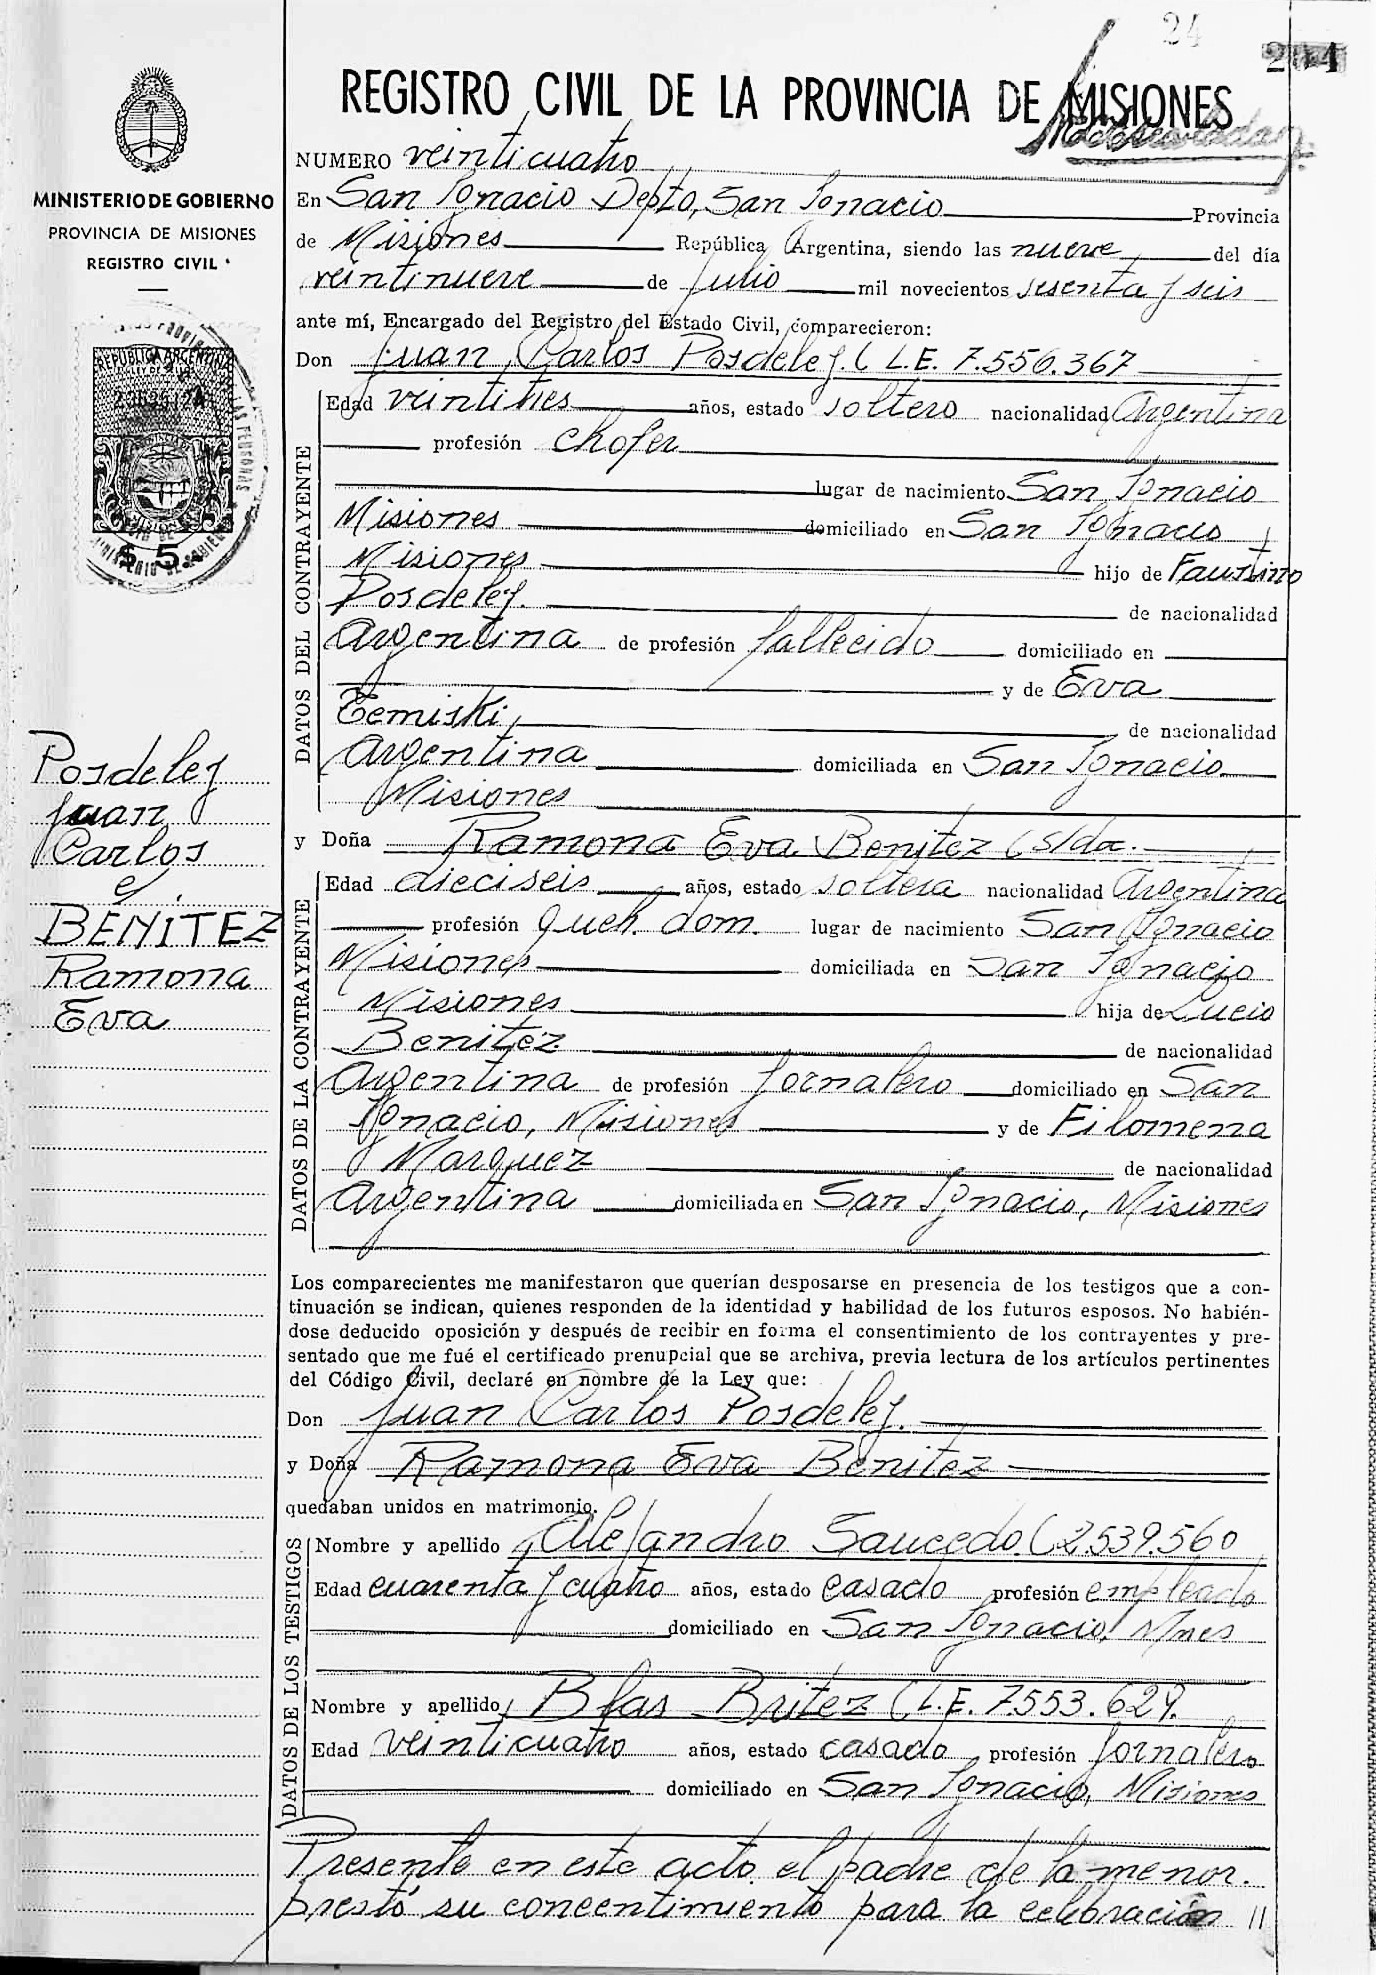 24
204
REGISTRO CIVIL DE LA PROVINCIA DE MISIONES
MINISTERIO DE GOBIERNO
PROVINCIA DE MISIONES
REGISTRO CIVIL
REPUBLICA ARGENTINA
$ 5.
Posdeley
Juan
Carlos
c/.
BENITEZ
Ramona
Eva
NUMERO veinticuatro
En San Ignacio Depto, San Ignacio Provincia
de Misiones República Argentina, siendo las nueve del día
veintinueve de Julio mil novecientos sesenta y seis
ante mí, Encargado del Registro del Estado Civil, comparecieron:
Don Juan Carlos Posdeley. (L.E. 7.556.367
DATOS DEL CONTRAYENTE
Edad veintitres años, estado soltero nacionalidad Argentina
profesión chofer
lugar de nacimiento San Ignacio
Misiones domiciliado en San Ignacio
Misiones hijo de Faustino
Posdeley. de nacionalidad
Argentina de profesión fallecido domiciliado en
y de Eva
Temiski de nacionalidad
Argentina domiciliada en San Ignacio
Misiones
y Doña Ramona Eva Benitez (s/da.
DATOS DE LA CONTRAYENTE
Edad dieciseis años, estado soltera nacionalidad Argentina
profesión queh. dom. lugar de nacimiento San Ignacio
Misiones domiciliada en San Ignacio
Misiones hija de Lucio
Benitez de nacionalidad
Argentina de profesión Jornalero domiciliado en San
Ignacio, Misiones y de Filomena
Marquez de nacionalidad
Argentina domiciliada en San Ignacio, Misiones
Los comparecientes me manifestaron que querían desposarse en presencia de los testigos que a con-
tinuación se indican, quienes responden de la identidad y habilidad de los futuros esposos. No habién-
dose deducido oposición y después de recibir en forma el consentimiento de los contrayentes y pre-
sentado que me fué el certificado prenupcial que se archiva, previa lectura de los artículos pertinentes
del Código Civil, declaré en nombre de la Ley que:
Don Juan Carlos Posdeley.
y Doña Ramona Eva Benitez
quedaban unidos en matrimonio.
DATOS DE LOS TESTIGOS
Nombre y apellido Alejandro Saucedo. (2.539.560
Edad cuarenta y cuatro años, estado casado profesión empleado
domiciliado en San Ignacio, Mnes
Nombre y apellido Blas Britez (L.E. 7.553.629.
Edad veinticuatro años, estado casado profesión jornalero
domiciliado en San Ignacio, Misiones
Presente en este acto el padre de la menor.
prestó su concentimiento para la celebración //